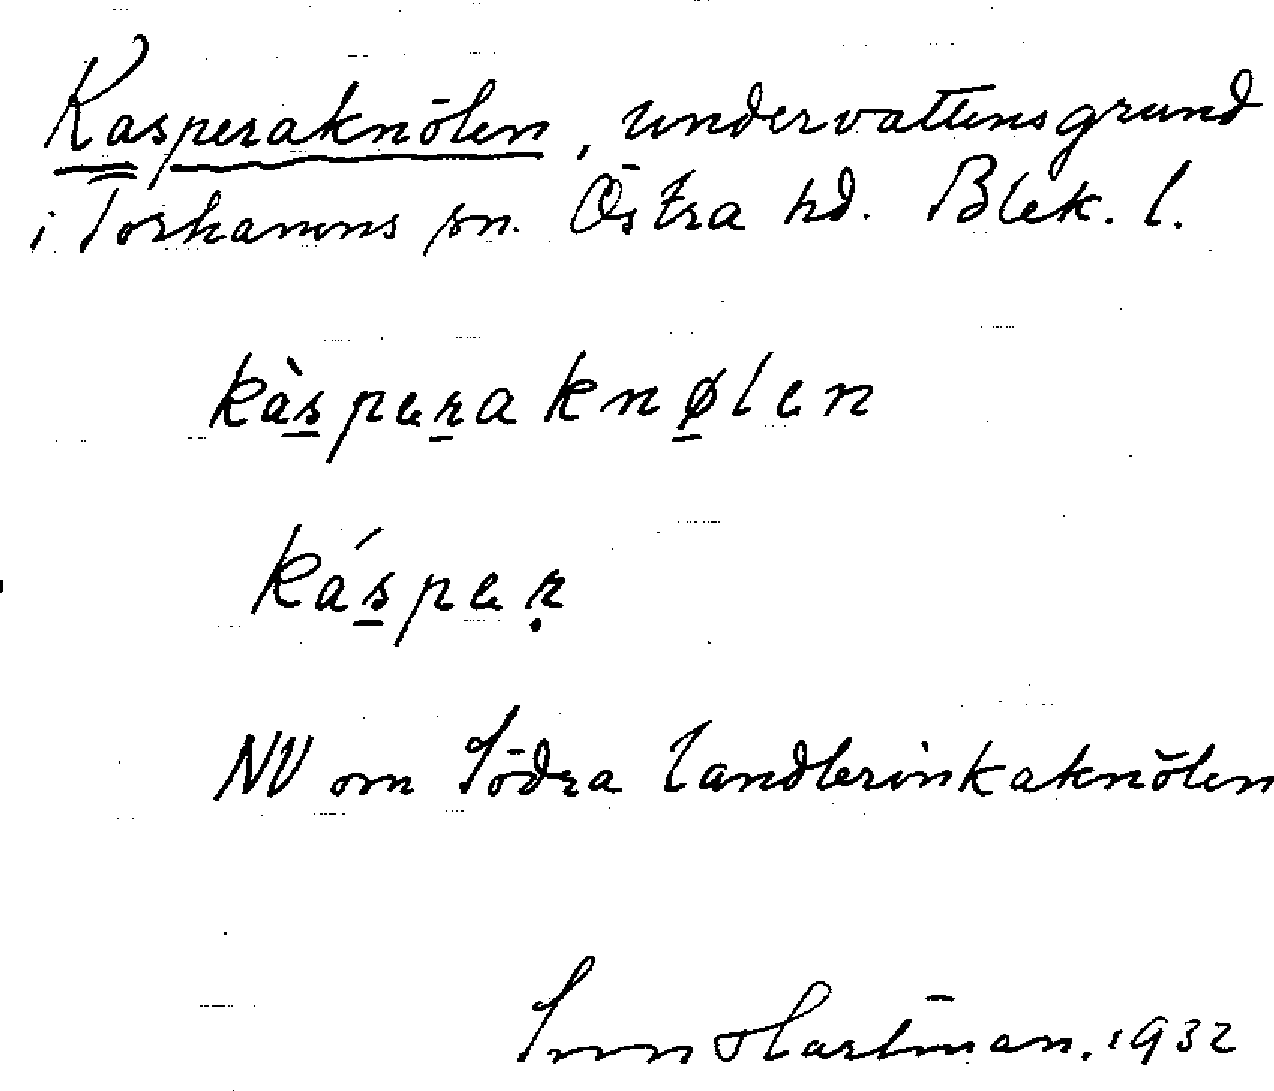 Kasperaknölen, undervattensgrund
i Torhamns sn. Östra hd. Blek. l.
kàs̠per̠aknø̠len
kás̠peṛ
NV om Södra Landbrinkaknölen
Sven Hartman. 1932